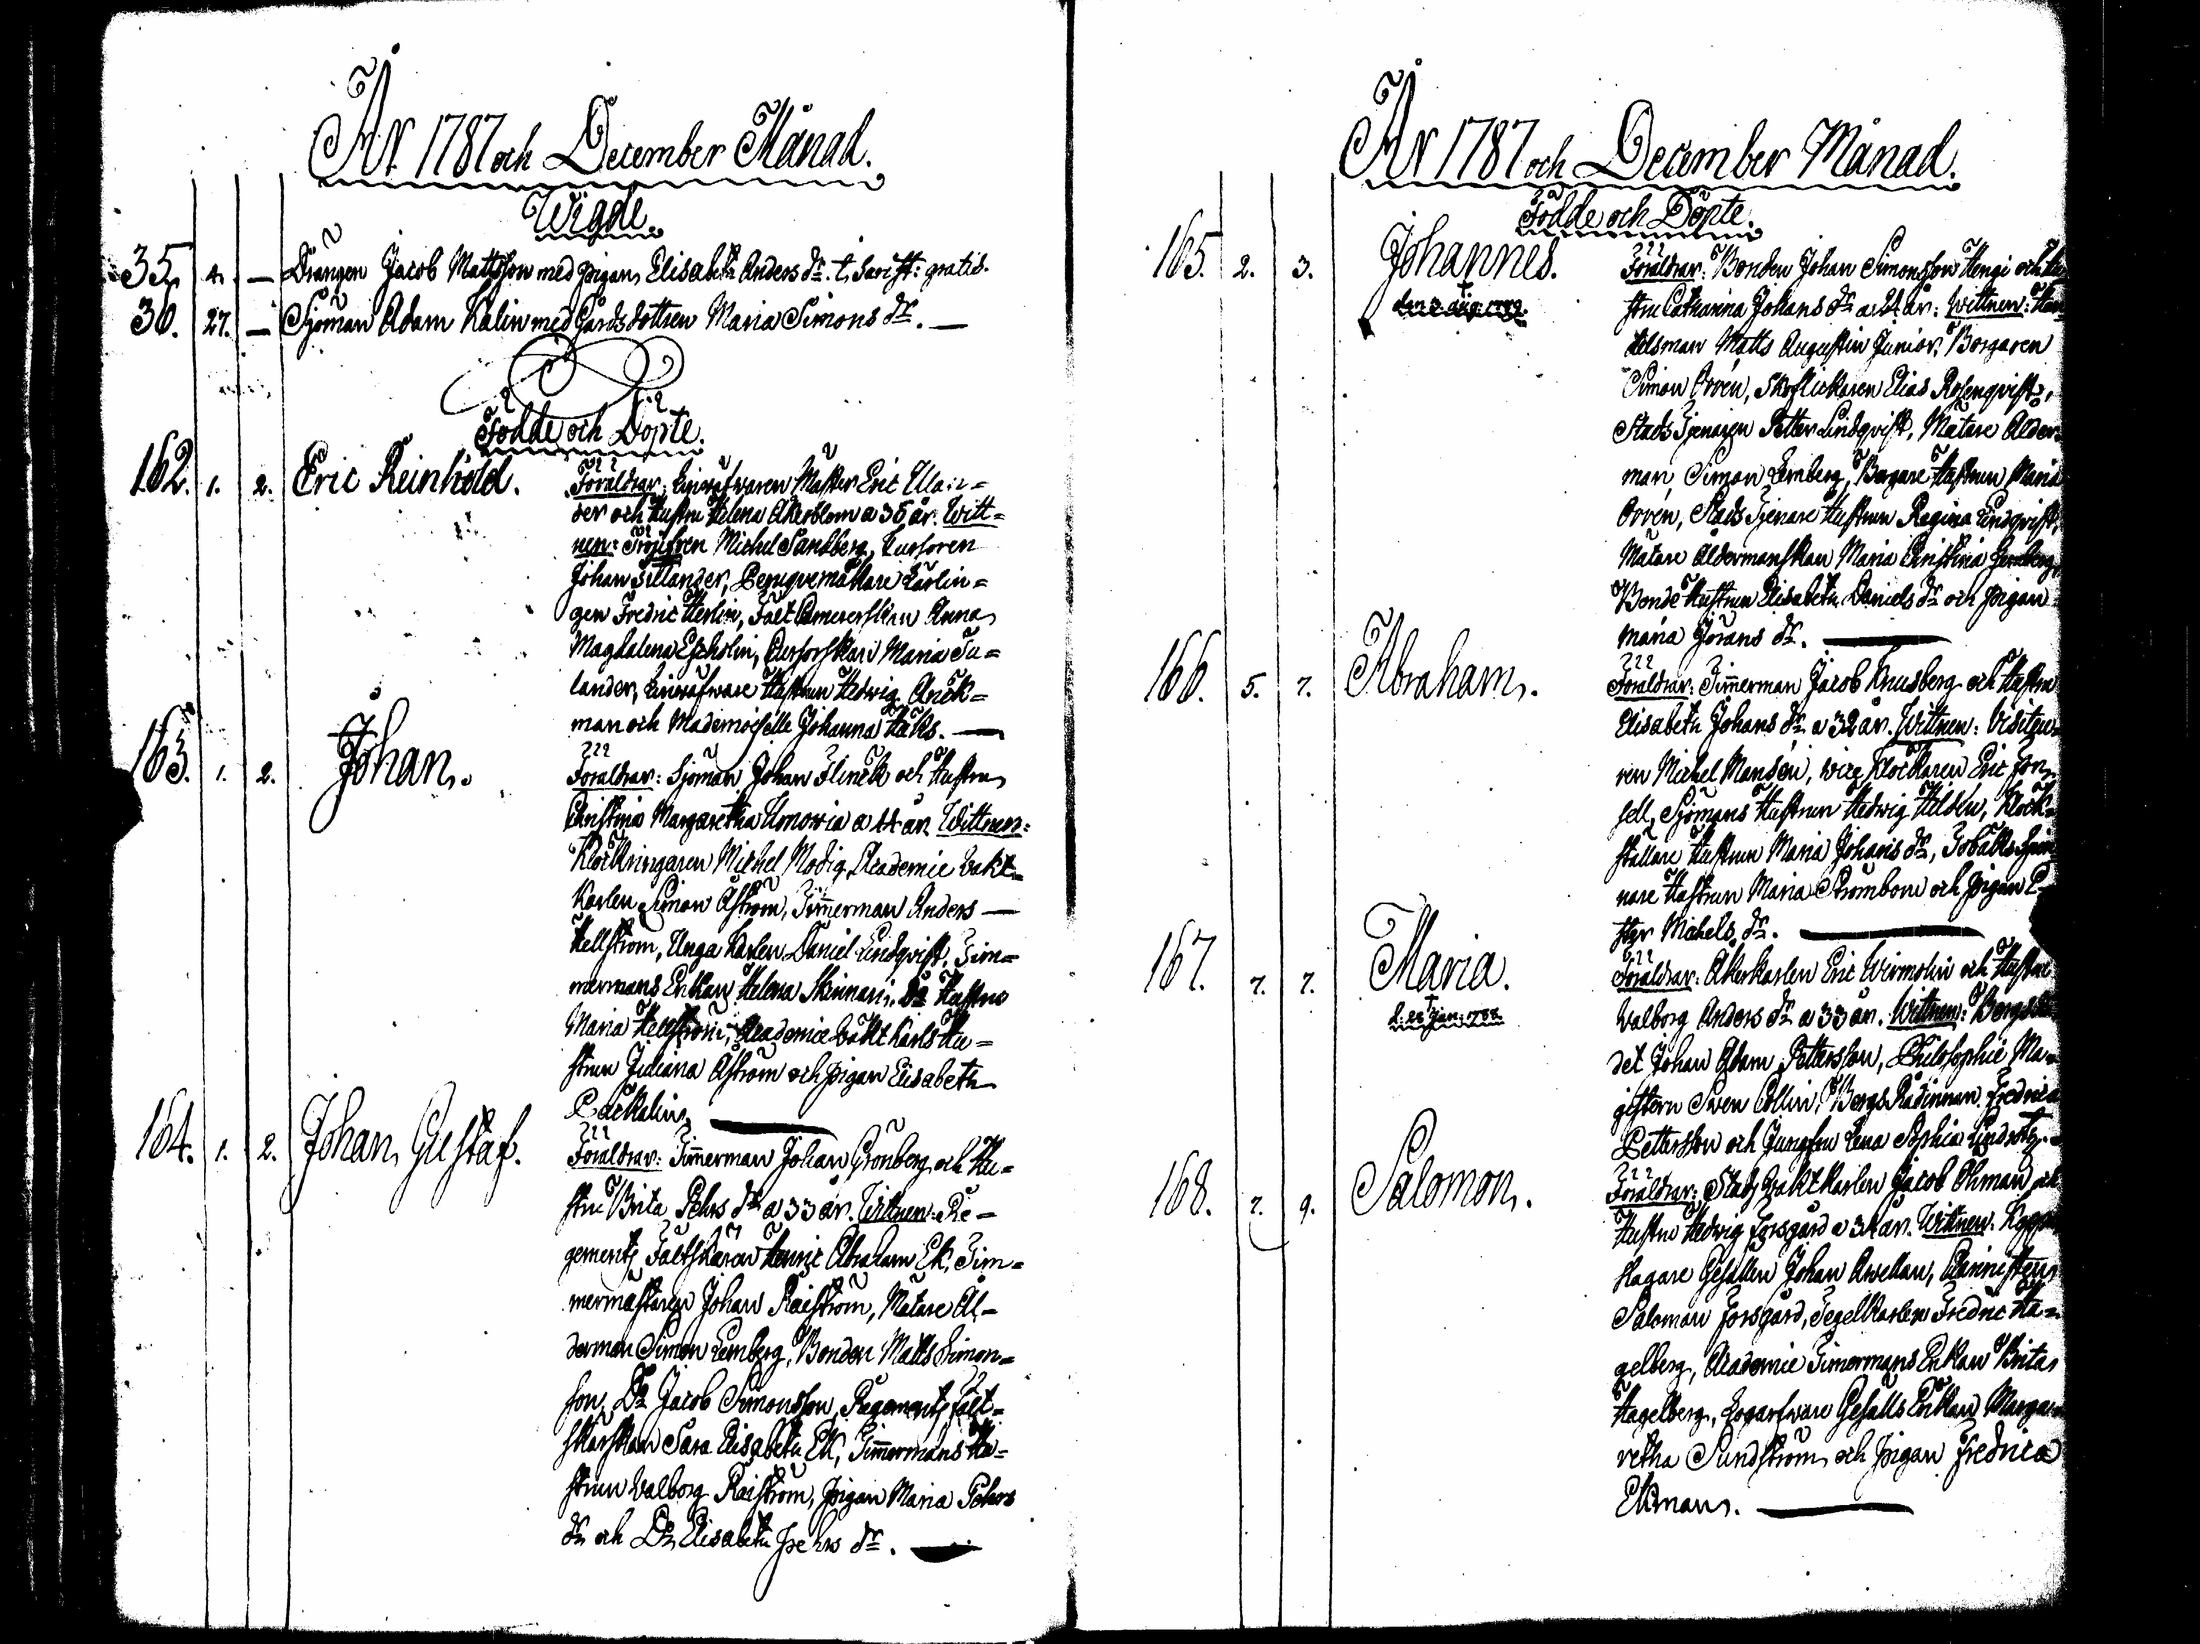 År 1787 och December Månad.
Wigde.
35. 4. — Drängen Jacob Mattsson med pigan Elisabeth Anders dr. t. gratis.
36. 27. — Sjöman Adam Kalin med Gårds dottren Maria Simons dr. —
Födde och Döpte.
162. 1. 2. Eric Reinhold. Föräldrar: Mäster Eric
der och Hustru Helena Åkerblom a 36 år. Witt=
nen: Michel Sandberg, Cursoren
Johan Peruquemakare Lärlin=
gen Fredric Herlin, Anna
Magdalena Escholin, Cursorskan Maria
lander, Hustrun Hedwig Anck=
man och Mademoiselle Johanna
163. 1. 2. Johan. Föräldrar: Sjöman Johan Flinck och Hustru
Christina Margaretha a 44 år. Wittnen:
Klockringaren Michel Modig, Academie Vakt=
Karlen Simon Åström, Timmerman Anders —
Hellström, Unga Karlen Daniel Lindqvist, Tim=
mermans Enkan Helena Skinnari, Do Hustrun
Maria Hellström, Academie Vakt Karls Hu=
strun Juliana Åström och pigan Elisabeth
Packalin. —
164. 1. 2. Johan Gustaf. Föräldrar: Timmerman Johan Grönberg och Hu=
stru Brita Pehrs dr a 33 år. Wittnen: Re=
gements Fältskären Henric Abraham Ek, Tim=
mermästaren Johan Raiström, Mätare Ål=
derman Simon Lemberg, Bonden Matts Simon=
son, Do Jacob Simonsson, Regements Fält=
skärskan Sara Elisabeth Ek, Timmermans Hu=
strun Valborg Raiström, Pigan Maria Pehrs
dr och Do Elisabeth Pehrs dr. —
År 1787 och December Månad.
Födde och Döpte.
165. 2. 3. Johannes. Föräldrar: Bonden Johan Simonsson Hengi och Hu
† den 2 Aug. 1789. stru Catharina Johans dr a 24 år. Wittnen: Han
delsman Matts Augustin Junior, Borgaren
Simon Orvén, Skoflickaren Elias Rosenqvist,
Stads Tjenaren Petter Lindqvist, Mätare Ålder
man Simon Lemberg, Borgare Hustrun Maria
Orvén, Stads Tjenare Hustrun Regina Lindqvist,
Mätare Åldermanskan Maria Christina Lemberg,
Bonde Hustrun Elisabeth Daniels dr och pigan
Maria Görans dr. —
166. 5. 7. Abraham. Föräldrar: Timmerman Jacob Knusberg och Hustru
Elisabeth Johans dr a 32 år. Wittnen: Visiteu=
ren Michel Mansén, vice Klockaren Eric Fon=
sell, Sjömans Hustrun Hedwig Hildén, Klock=
ställare Hustrun Maria Johans dr, Tobaks
nare Hustrun Maria Strömbom och pigan E=
ster Michels dr. —
167. 7. 7. Maria. Föräldrar: Åkerkarlen Eric Wirmolin och Hustru
† d. 22 Jan: 1788. Valborg Anders dr a 33 år. Wittnen: Bergsrå
det Johan Adam Pettersson, Philosophie Ma=
gistern Sven Collin, Bergs Rådinnan Fredrica
Pettersson och Jungfru Lena Sophia
168. 7. 9. Salomon. Föräldrar: Stads Vaktkarlen Jacob Öhman och
Hustru Hedwig Forsgård a 34 år. Wittnen: Koppar
slagare Gesällen Johan Avellan,
Salomon Forsgård, Segelkarlen Fredric Ha=
gelberg, Academie Timermans Enkan Brita
Hagelberg, Gesälls Enkan Marga=
retha Sundström och pigan Fredrica
Ekman. —